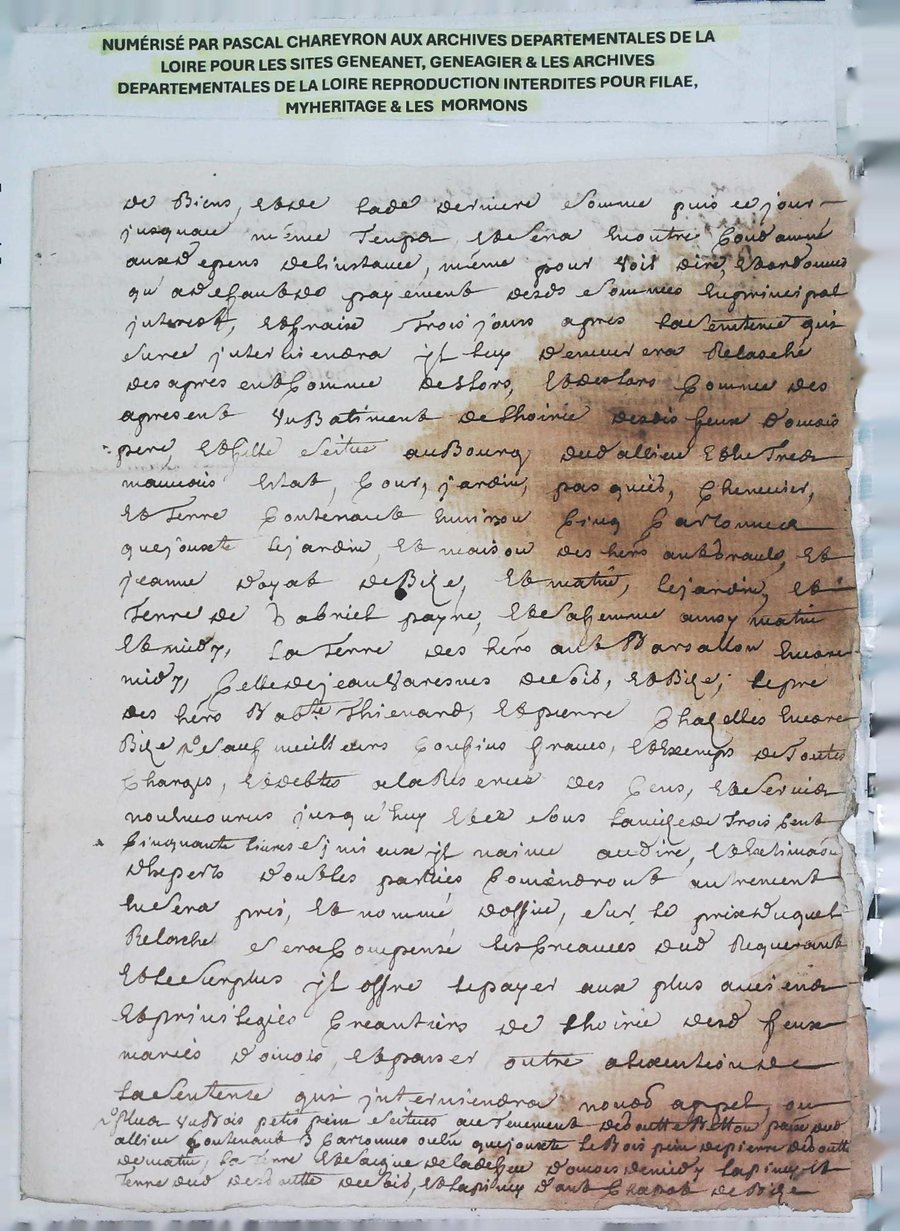 NUMÉRISÉ PAR PASCAL CHAREYRON AUX ARCHIVES DEPARTEMENTALES DE LA
LOIRE POUR LES SITES GENEANET, GENEAGIER & LES ARCHIVES
DEPARTEMENTALES DE LA LOIRE REPRODUCTION INTERDITES POUR FILAE,
MYHERITAGE & LES MORMONS
de Biens, et de lade derniere somme puis ce jour
jusquau même Temps et sera en outre Condamné
aux depens de linstance, même pour voir dire, et ordonner
qu'a defaut de payement desd sommes en principal
interest, et fraix Trois jours apres la sentence qui
sur ce interviendra jl luy demeurera Relasché
des apresent Comme deslors, et deslors Comme des
apresent un Batiment de lhoirie desdis feux
pere, et fille situé au Bourg dud allieu et en Tres
mauvais Estat, Cour, jardin, pasquiés, Chenevier,
et Terre Contenant Environ Cinq Cartonnes
que jouxte le jardin, et maison des hers ant et
jeanne doyat de Bize, et matin, le jardin, et
Terre de Gabriel payre, et de sa femme aussy matin
et midy, la Terre des hers ant Barsallon Encore
midy, Celle de jean de soir, et Bize; le pré
des hers Thienard, et pierre Chazelles Encore
Bize sauf meilleurs Confins francs, et Exempts de Toutes
Charges, et debtes a la Reserve des Cens, et Servis
non encourus jusqu'huy et ce sous lavisé de Trois Cent
Cinquante livres si mieux jl naime audire, et Estimaon
dExperts doubles parties Conviendront autrement
En sera pris, et nommé doffice, sur le prix duquel
Relaché sera Compensé les Creances dud Requerant
et le surplus jl offre le payer aux plus anciens
et privilegiés Creantiers de lhoirie desd feux
mariés et passer outre a lexecution de
la Sentence qui interviendra nonobs appel, ou
plus un Bois petit pin situé au Tenement de paroisse dud
allieu Contenant 3 Cartonnes ou que jouxte le Bois pin de pierre
de matin, la Terre de lad feu de midy la piney et
Terre dud de soir, et la piney dant Chapat de Bize